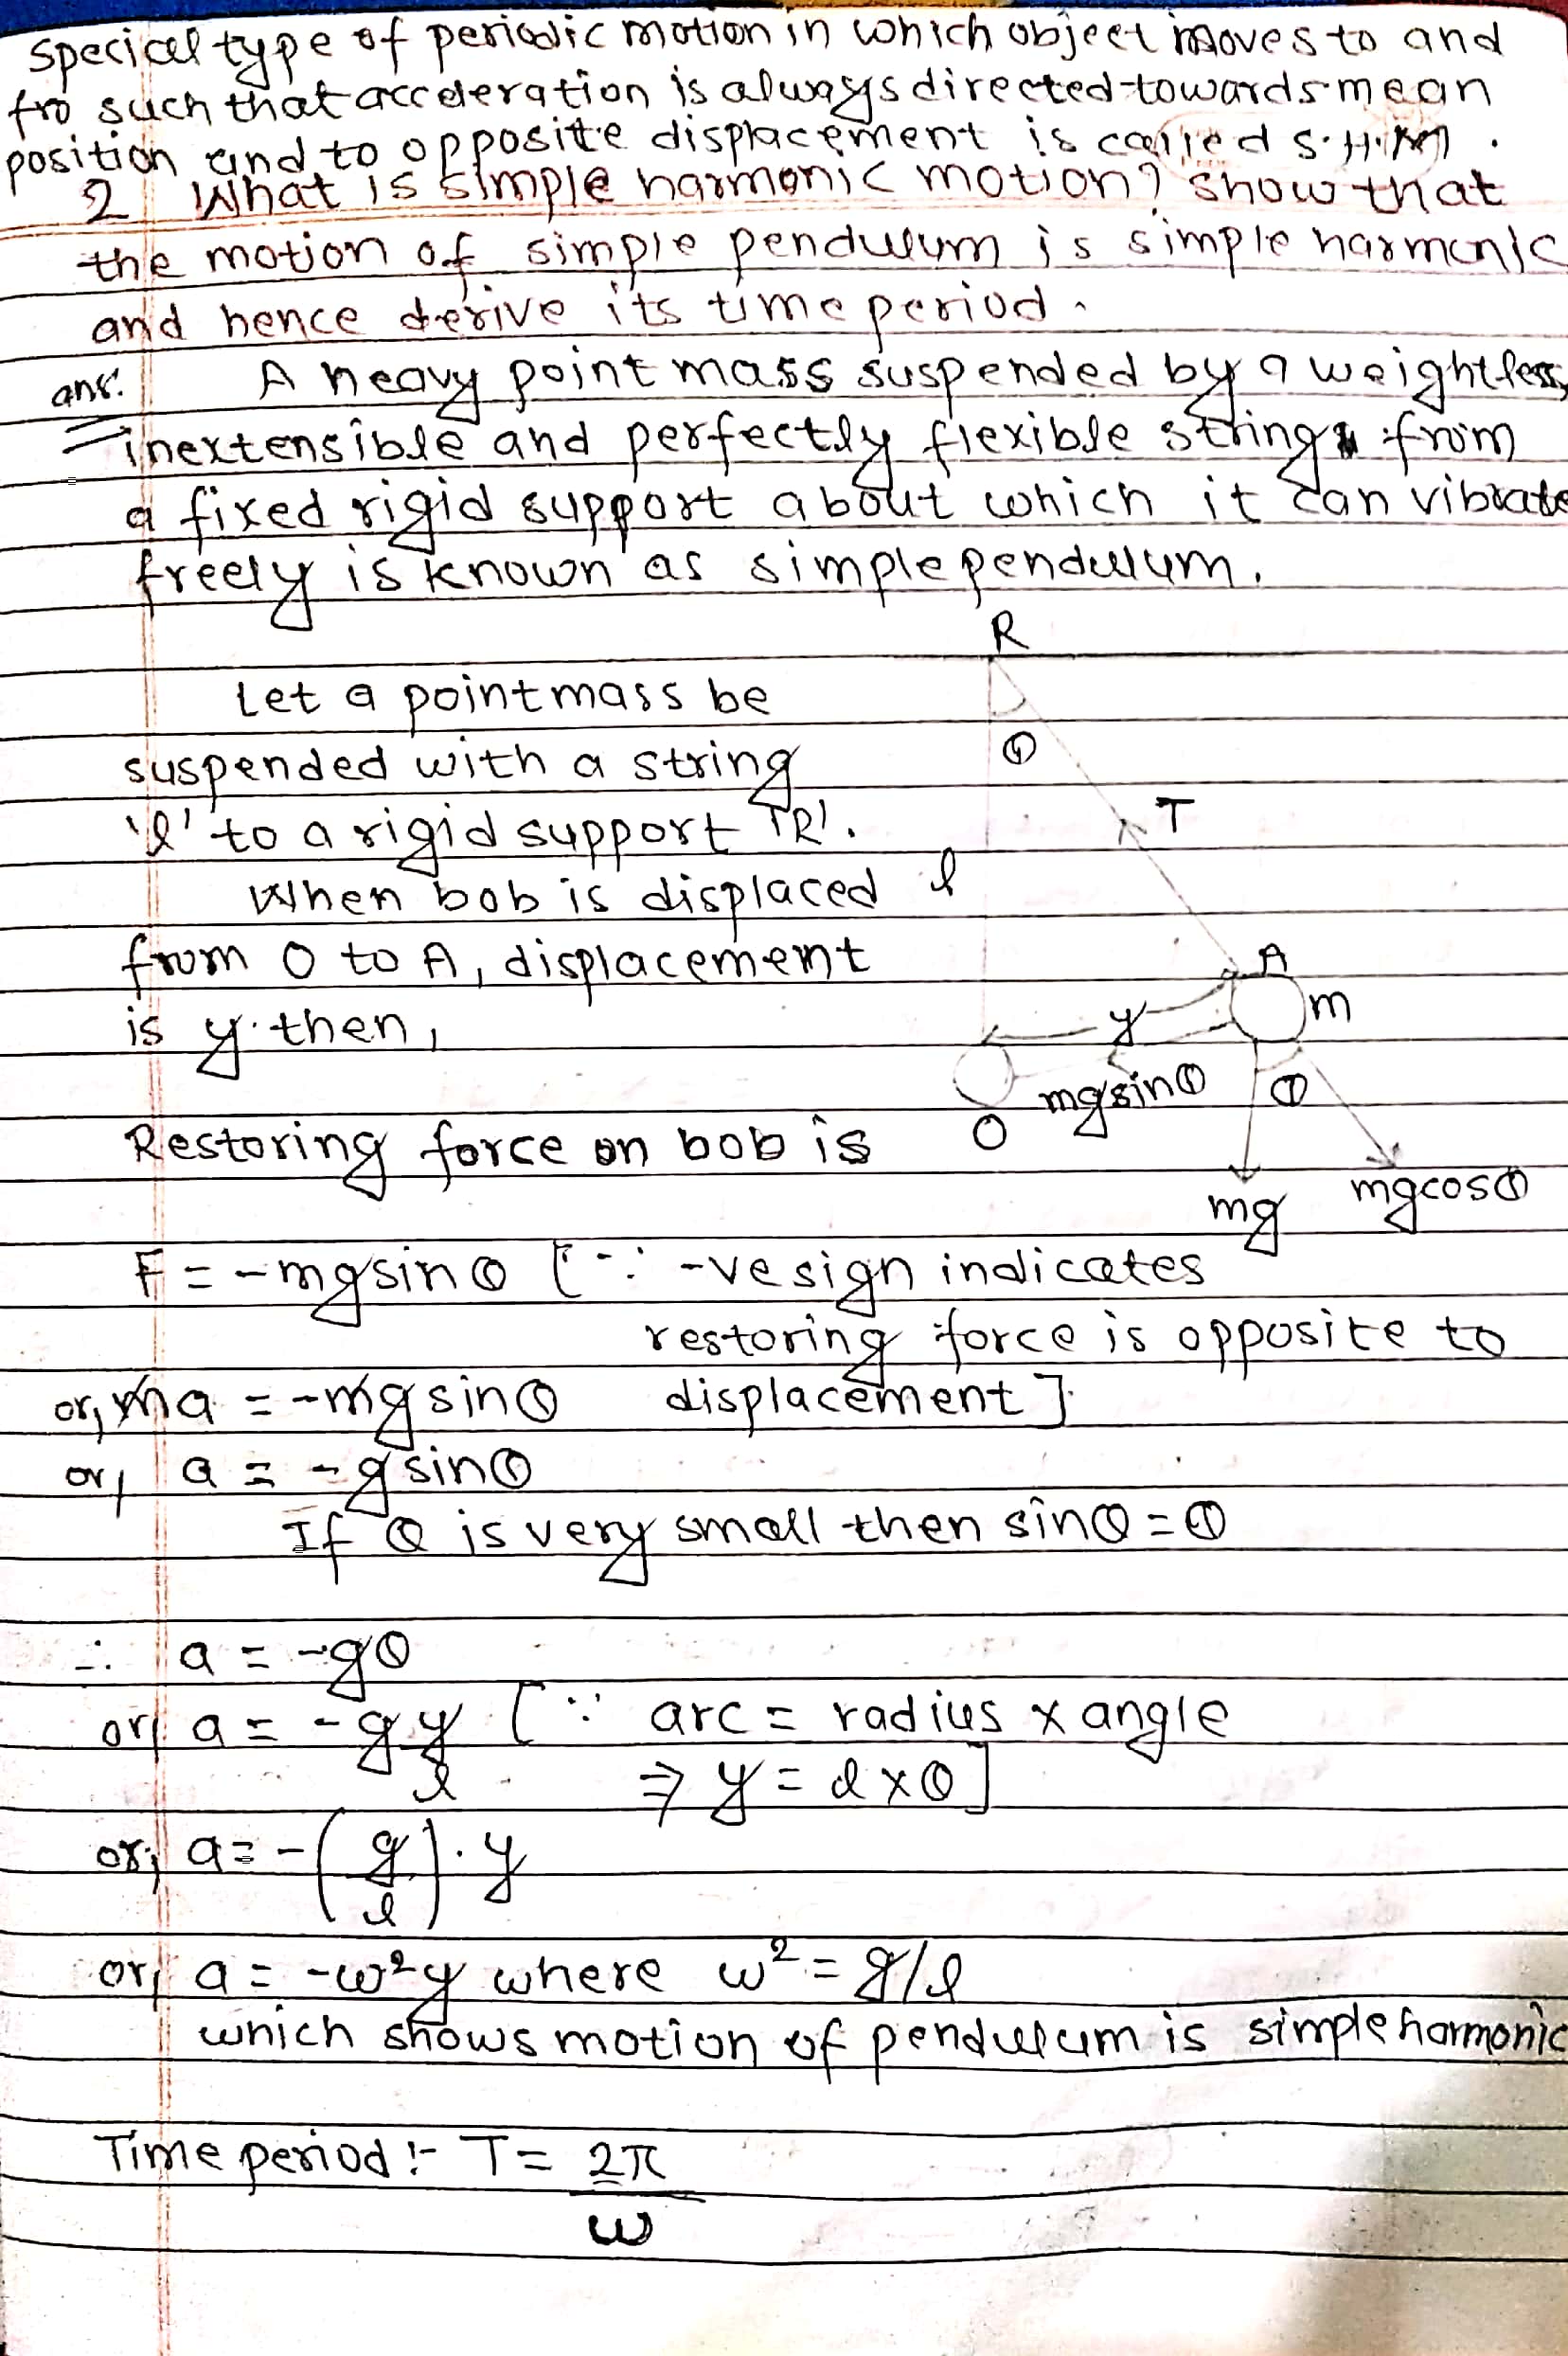 special type of periodic motion in which object moves to and
fro such that acceleration is always directed towards mean
position and to opposite displacement is called S.H.M.
2 What is simple harmonic motion? show that
the motion of simple pendulum is simple harmonic
and hence derive its time period.
ans. A heavy point mass suspended by a weightless,
inextensible and perfectly flexible string from
a fixed rigid support about which it can vibrate
freely is known as simple pendulum.
R
Let a point mass be
suspended with a string
θ
'l' to a rigid support 'R'.
T
When bob is displaced
l
from O to A, displacement
A
is y. then,
m
y
mgsinθ
θ
Restoring force on bob is
O
mg
mgcosθ
F = -mgsinθ [∵ -ve sign indicates
restoring force is opposite to
or, ma = -mgsinθ displacement].
or, a = -gsinθ
If θ is very small then sinθ = θ
∴ a = -gθ
or, a = -g y/l [∵ arc = radius x angle
⇒ y = l x θ]
or, a = -(g/l).y
or, a = -ω²y where ω² = g/l
which shows motion of pendulum is simple harmonic
Time period :- T = 2π/ω